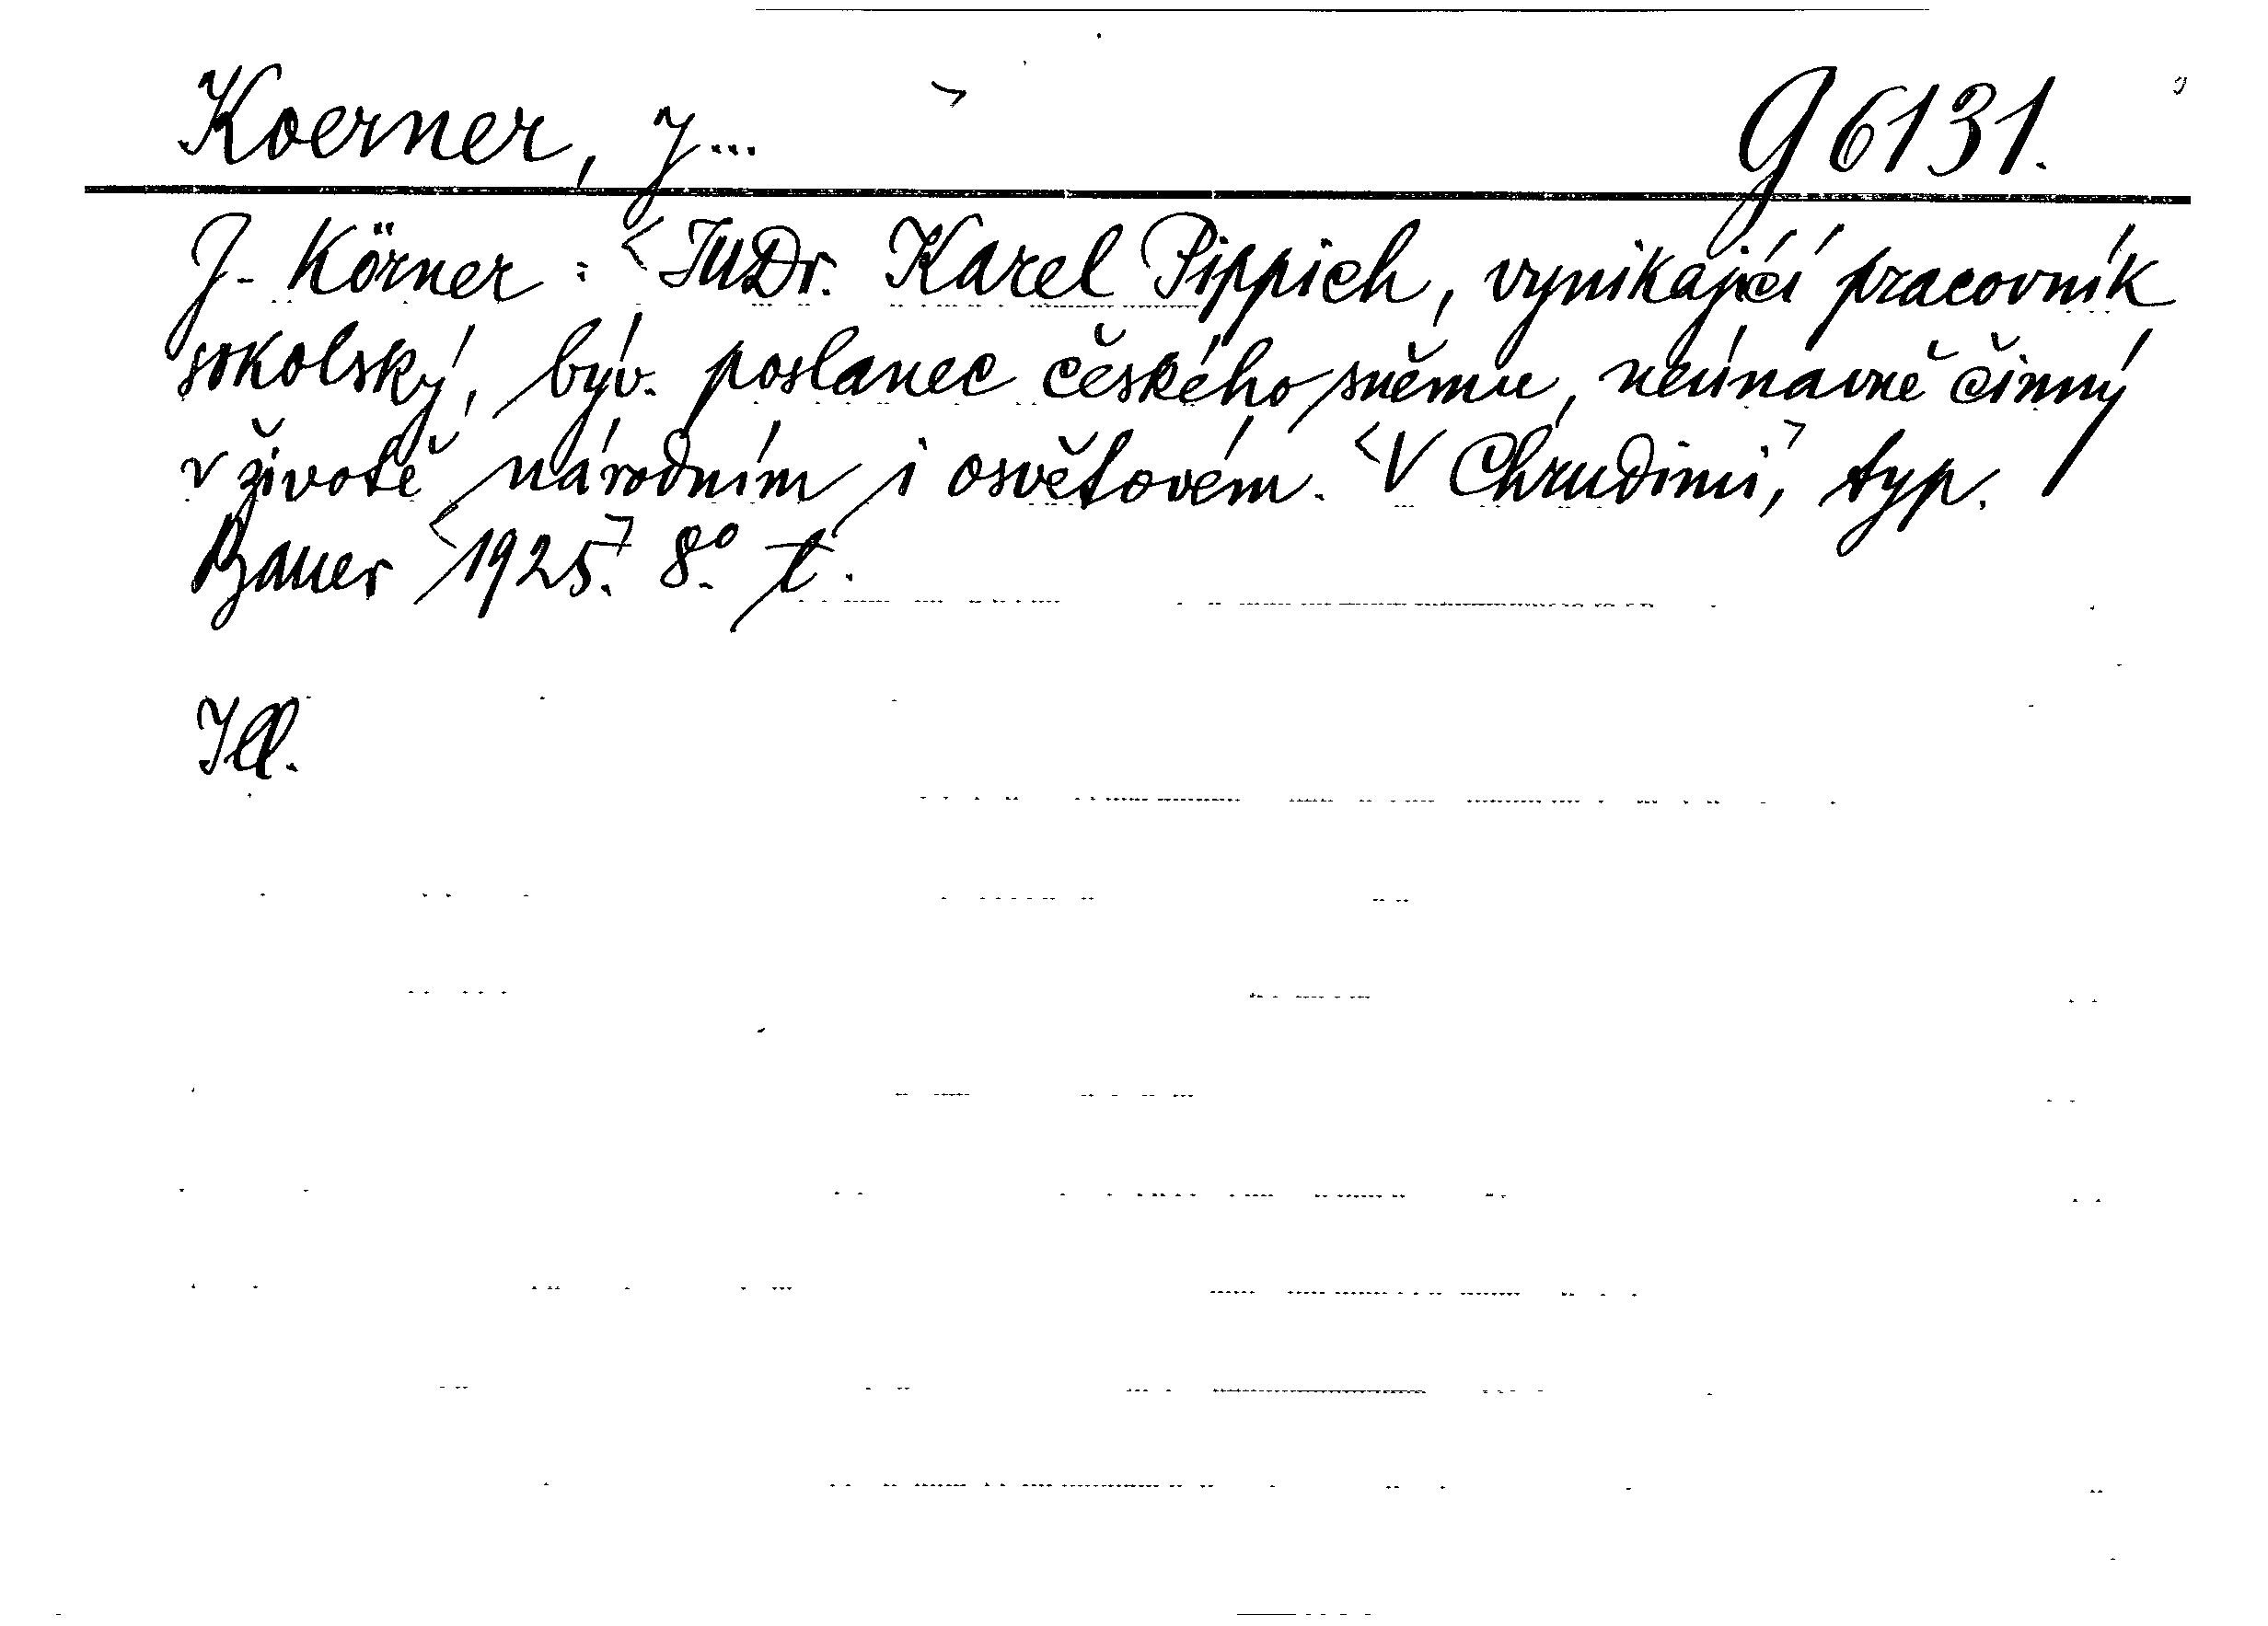 Koerner, J... G 6131.
J. Körner: <JUDr. Karel Pippich, vynikající pracovník
sokolský, býv. poslanec českého sněmu, neúnavně činný
v životě národním i osvětovém. <V Chrudimi,> typ.
Bauer <1925.> 8º. t.
Ill.